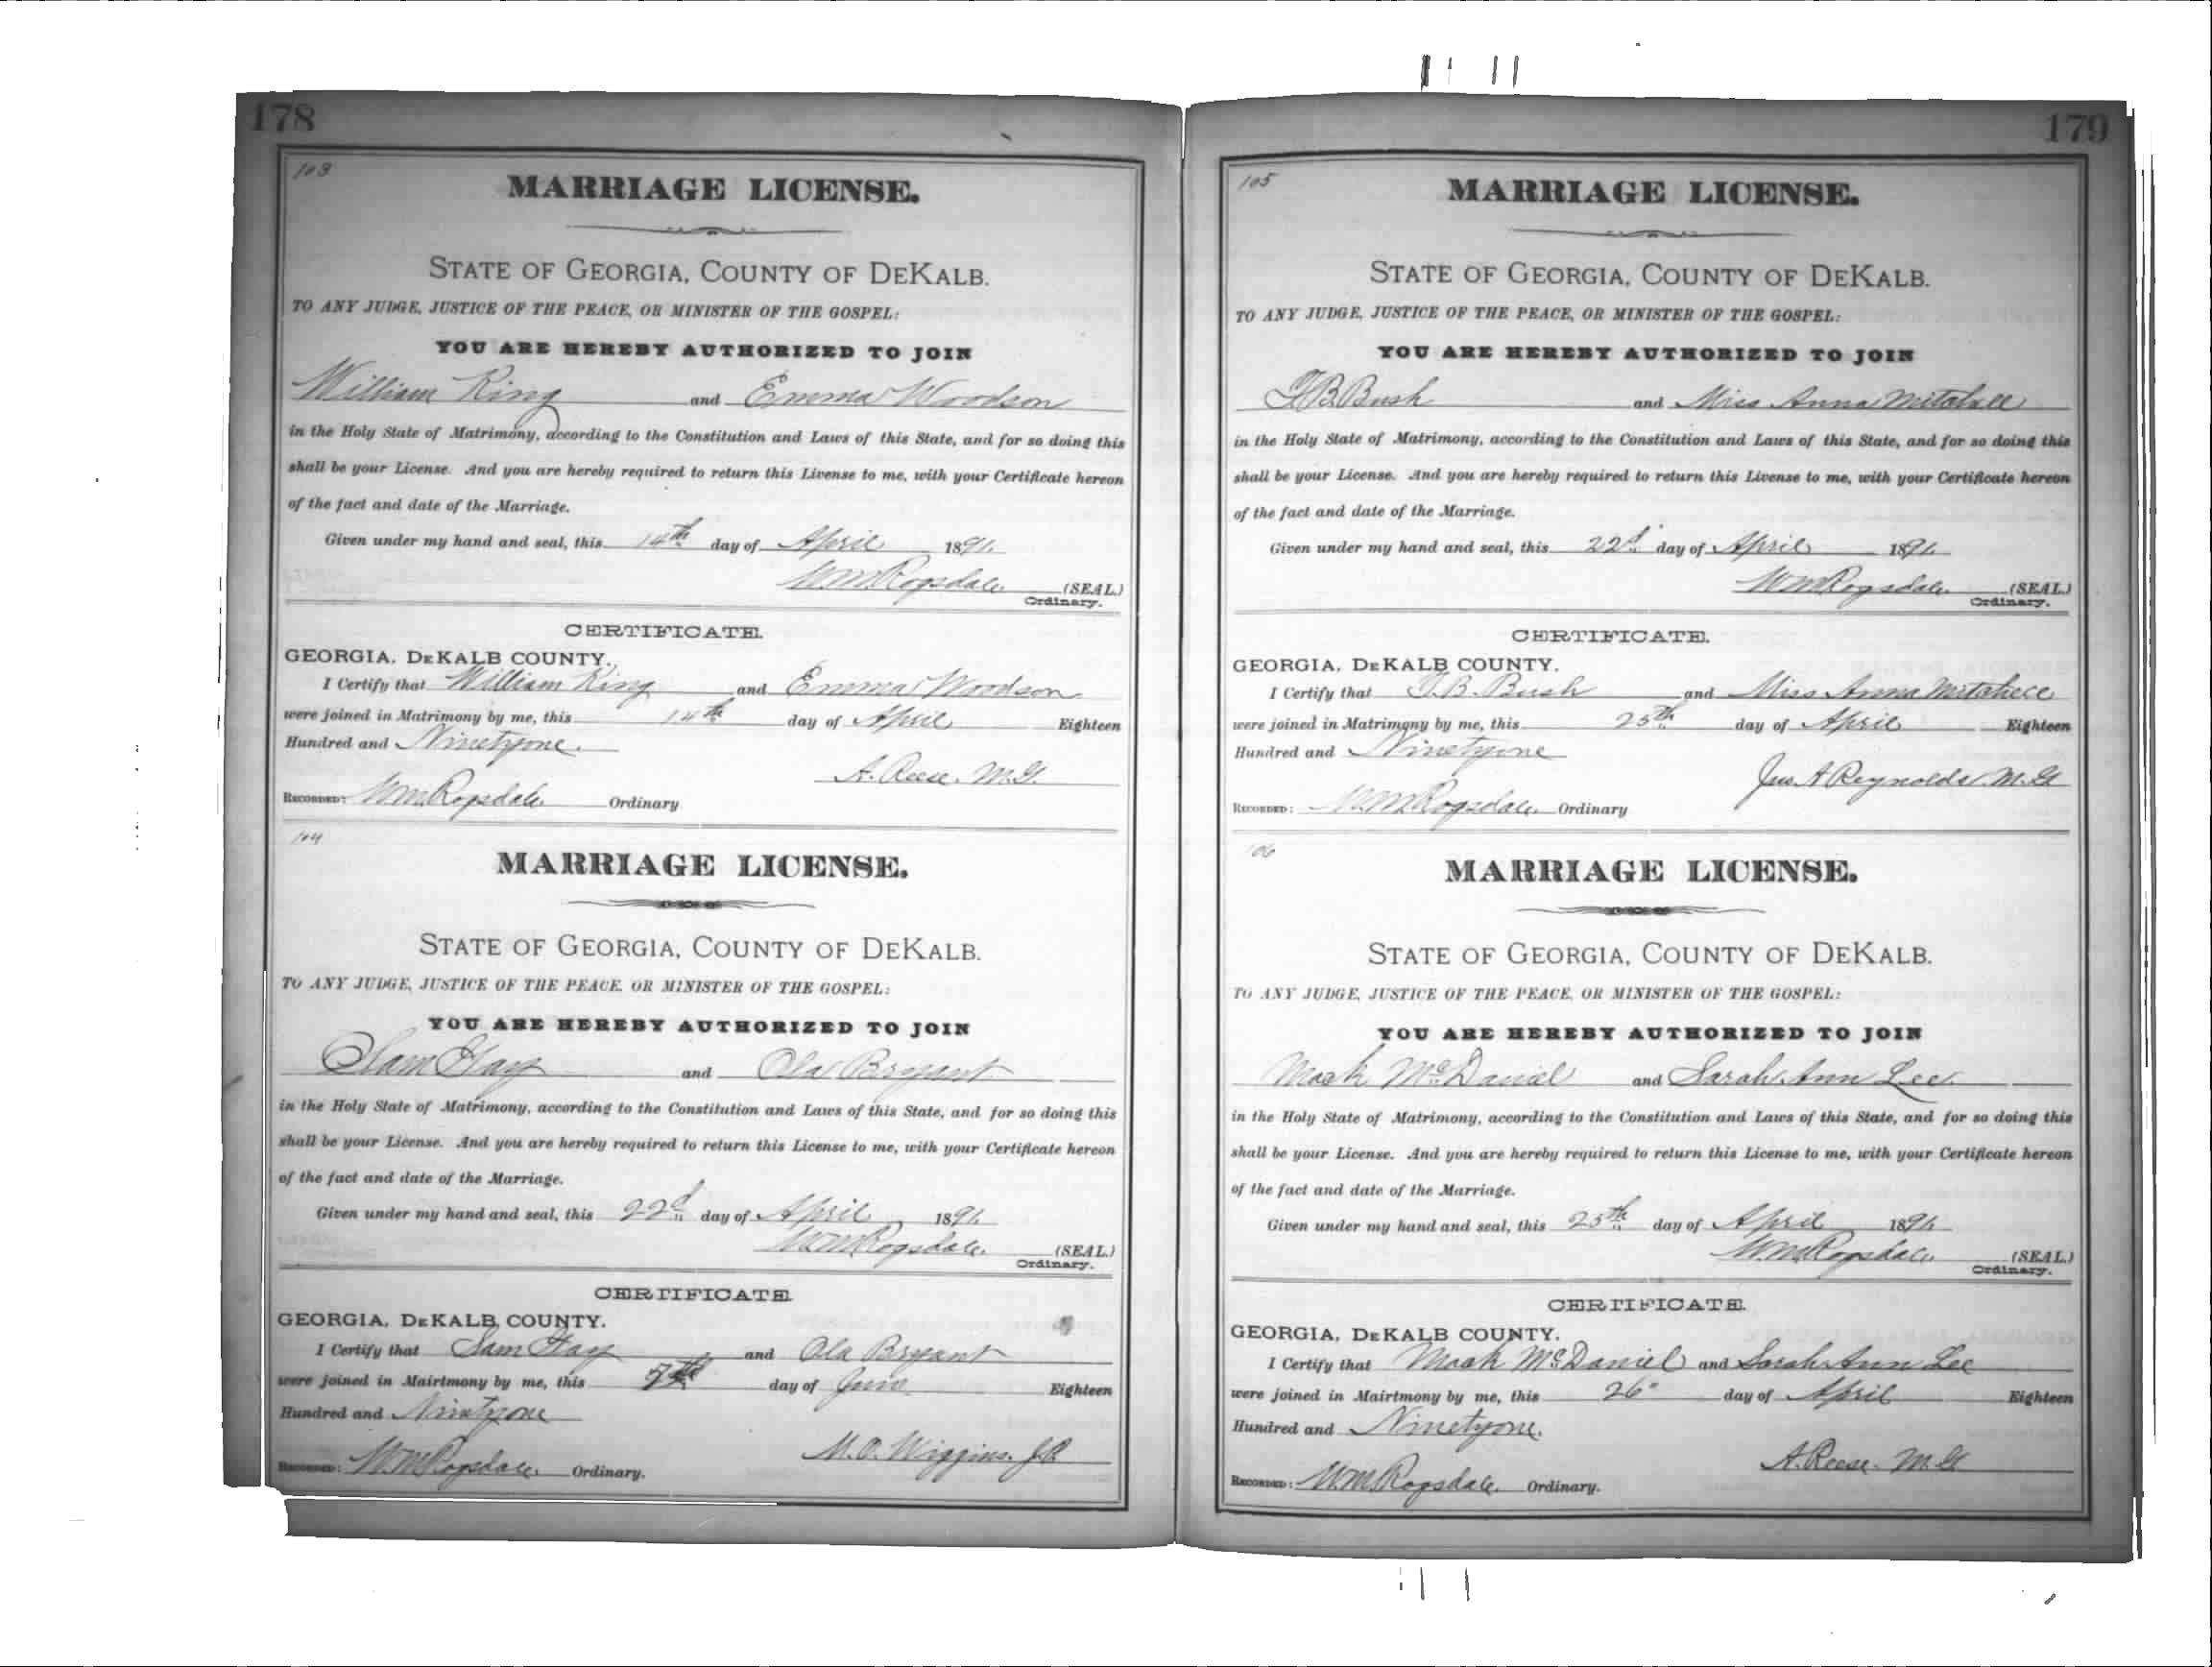 178
103
MARRIAGE LICENSE.
STATE OF GEORGIA, COUNTY OF DEKALB.
TO ANY JUDGE, JUSTICE OF THE PEACE, OR MINISTER OF THE GOSPEL:
YOU ARE HEREBY AUTHORIZED TO JOIN
William King and Emma Woodson
in the Holy State of Matrimony, according to the Constitution and Laws of this State, and for so doing this
shall be your License. And you are hereby required to return this License to me, with your Certificate hereon
of the fact and date of the Marriage.
Given under my hand and seal, this 14th day of April 1891.
W.M. Ragsdale. (SEAL.)
Ordinary.
CERTIFICATE.
GEORGIA, DEKALB COUNTY.
I Certify that William King and Emma Woodson
were joined in Matrimony by me, this 14th day of April Eighteen
Hundred and Ninetyone.
A. Reese. M.G.
RECORDED: W.M. Ragsdale. Ordinary
104
MARRIAGE LICENSE.
STATE OF GEORGIA, COUNTY OF DEKALB.
TO ANY JUDGE, JUSTICE OF THE PEACE, OR MINISTER OF THE GOSPEL:
YOU ARE HEREBY AUTHORIZED TO JOIN
Sam Hay and Ola Bryant
in the Holy State of Matrimony, according to the Constitution and Laws of this State, and for so doing this
shall be your License. And you are hereby required to return this License to me, with your Certificate hereon
of the fact and date of the Marriage.
Given under my hand and seal, this 22d day of April 1891.
W.M. Ragsdale. (SEAL.)
Ordinary.
CERTIFICATE
GEORGIA, DEKALB COUNTY.
I Certify that Sam Hay and Ola Bryant
were joined in Mairtmony by me, this 7th day of June Eighteen
Hundred and Ninetyone
M.O. Wiggins. J.P.
RECORDED: W.M. Ragsdale. Ordinary.
179
105
MARRIAGE LICENSE.
STATE OF GEORGIA, COUNTY OF DEKALB.
TO ANY JUDGE, JUSTICE OF THE PEACE, OR MINISTER OF THE GOSPEL:
YOU ARE HEREBY AUTHORIZED TO JOIN
B. Bush and Miss Anna
in the Holy State of Matrimony, according to the Constitution and Laws of this State, and for so doing this
shall be your License. And you are hereby required to return this License to me, with your Certificate hereon
of the fact and date of the Marriage.
Given under my hand and seal, this 22d day of April 1891.
W.M. Ragsdale. (SEAL.)
Ordinary.
CERTIFICATE.
GEORGIA, DEKALB COUNTY.
I Certify that B. Bush and Miss Anna
were joined in Matrimony by me, this 25th day of April Eighteen
Hundred and Ninetyone
Jas. A Reynolds. M.G
RECORDED: W.M. Ragsdale. Ordinary
106
MARRIAGE LICENSE.
STATE OF GEORGIA, COUNTY OF DEKALB.
TO ANY JUDGE, JUSTICE OF THE PEACE, OR MINISTER OF THE GOSPEL:
YOU ARE HEREBY AUTHORIZED TO JOIN
Mack McDaniel and Sarah Ann Lee.
in the Holy State of Matrimony, according to the Constitution and Laws of this State, and for so doing this
shall be your License. And you are hereby required to return this License to me, with your Certificate hereon
of the fact and date of the Marriage.
Given under my hand and seal, this 25th day of April 1891.
W.M. Ragsdale. (SEAL.)
Ordinary.
CERTIFICATE.
GEORGIA, DEKALB COUNTY.
I Certify that Mack McDaniel and Sarah Ann Lee
were joined in Mairtmony by me, this 26" day of April Eighteen
Hundred and Ninetyone.
A. Reese. M.G
RECORDED: W.M. Ragsdale. Ordinary.